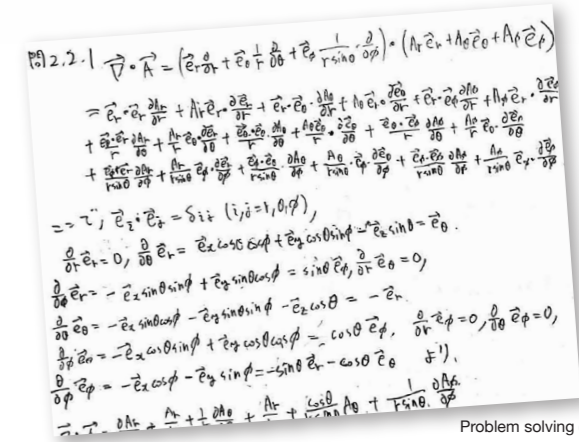 問2.2.1 $\vec{\nabla}\cdot\vec{A} = \left(\vec{e}_r\frac{\partial}{\partial r} + \vec{e}_\theta\frac{1}{r}\frac{\partial}{\partial\theta} + \vec{e}_\phi\frac{1}{r\sin\theta}\cdot\frac{\partial}{\partial\phi}\right)\cdot(A_r\vec{e}_r + A_\theta\vec{e}_\theta + A_\phi\vec{e}_\phi)$
$= \vec{e}_r\cdot\vec{e}_r\frac{\partial A_r}{\partial r} + A_r\vec{e}_r\cdot\frac{\partial\vec{e}_r}{\partial r} + \vec{e}_r\cdot\vec{e}_\theta\cdot\frac{\partial A_\theta}{\partial r} + A_\theta\vec{e}_r\cdot\frac{\partial\vec{e}_\theta}{\partial r} + \vec{e}_r\cdot\vec{e}_\phi\frac{\partial A_\phi}{\partial r} + A_\phi\vec{e}_r\cdot\frac{\partial\vec{e}_\phi}{\partial r}$
$+ \frac{\vec{e}_\theta\cdot\vec{e}_r}{r}\frac{\partial A_r}{\partial\theta} + \frac{A_r}{r}\vec{e}_\theta\cdot\frac{\partial\vec{e}_r}{\partial\theta} + \frac{\vec{e}_\theta\cdot\vec{e}_\theta}{r}\cdot\frac{\partial A_\theta}{\partial\theta} + \frac{A_\theta\vec{e}_\theta}{r}\cdot\frac{\partial\vec{e}_\theta}{\partial\theta} + \frac{\vec{e}_\theta\cdot\vec{e}_\phi}{r}\frac{\partial A_\phi}{\partial\theta} + \frac{A_\phi}{r}\vec{e}_\theta\cdot\frac{\partial\vec{e}_\phi}{\partial\theta}$
$+ \frac{\vec{e}_\phi\cdot\vec{e}_r}{r\sin\theta}\frac{\partial A_r}{\partial\phi} + \frac{A_r}{r\sin\theta}\vec{e}_\phi\cdot\frac{\partial\vec{e}_r}{\partial\phi} + \frac{\vec{e}_\phi\cdot\vec{e}_\theta}{r\sin\theta}\cdot\frac{\partial A_\theta}{\partial\phi} + \frac{A_\theta}{r\sin\theta}\cdot\vec{e}_\phi\cdot\frac{\partial\vec{e}_\theta}{\partial\phi} + \frac{\vec{e}_\phi\cdot\vec{e}_\phi}{r\sin\theta}\frac{\partial A_\phi}{\partial\phi} + \frac{A_\phi}{r\sin\theta}\vec{e}_\phi\cdot\frac{\partial\vec{e}_\phi}{\partial\phi}$
ここで, $\vec{e}_i\cdot\vec{e}_j = \delta_{ij}\ (i,j=r,\theta,\phi)$,
$\frac{\partial}{\partial r}\vec{e}_r = 0,\ \frac{\partial}{\partial\theta}\vec{e}_r = \vec{e}_x\cos\theta\cos\phi + \vec{e}_y\cos\theta\sin\phi - \vec{e}_z\sin\theta = \vec{e}_\theta.$
$\frac{\partial}{\partial\phi}\vec{e}_r = -\vec{e}_x\sin\theta\sin\phi + \vec{e}_y\sin\theta\cos\phi = \sin\theta\,\vec{e}_\phi,\ \frac{\partial}{\partial r}\vec{e}_\theta = 0,$
$\frac{\partial}{\partial\theta}\vec{e}_\theta = -\vec{e}_x\sin\theta\cos\phi - \vec{e}_y\sin\theta\sin\phi - \vec{e}_z\cos\theta = -\vec{e}_r.$
$\frac{\partial}{\partial\phi}\vec{e}_\theta = -\vec{e}_x\cos\theta\sin\phi + \vec{e}_y\cos\theta\cos\phi = \cos\theta\,\vec{e}_\phi,\ \frac{\partial}{\partial r}\vec{e}_\phi = 0,\ \frac{\partial}{\partial\theta}\vec{e}_\phi = 0,$
$\frac{\partial}{\partial\phi}\vec{e}_\phi = -\vec{e}_x\cos\phi - \vec{e}_y\sin\phi = -\sin\theta\,\vec{e}_r - \cos\theta\,\vec{e}_\theta$ より,
$\frac{\partial A_r}{\partial r} + \frac{A_r}{r} + \frac{1}{r}\frac{\partial A_\theta}{\partial\theta} + \frac{A_r}{r} + \frac{\cos\theta}{r\sin\theta}A_\theta + \frac{1}{r\sin\theta}\cdot\frac{\partial A_\phi}{\partial\phi}$
Problem solving